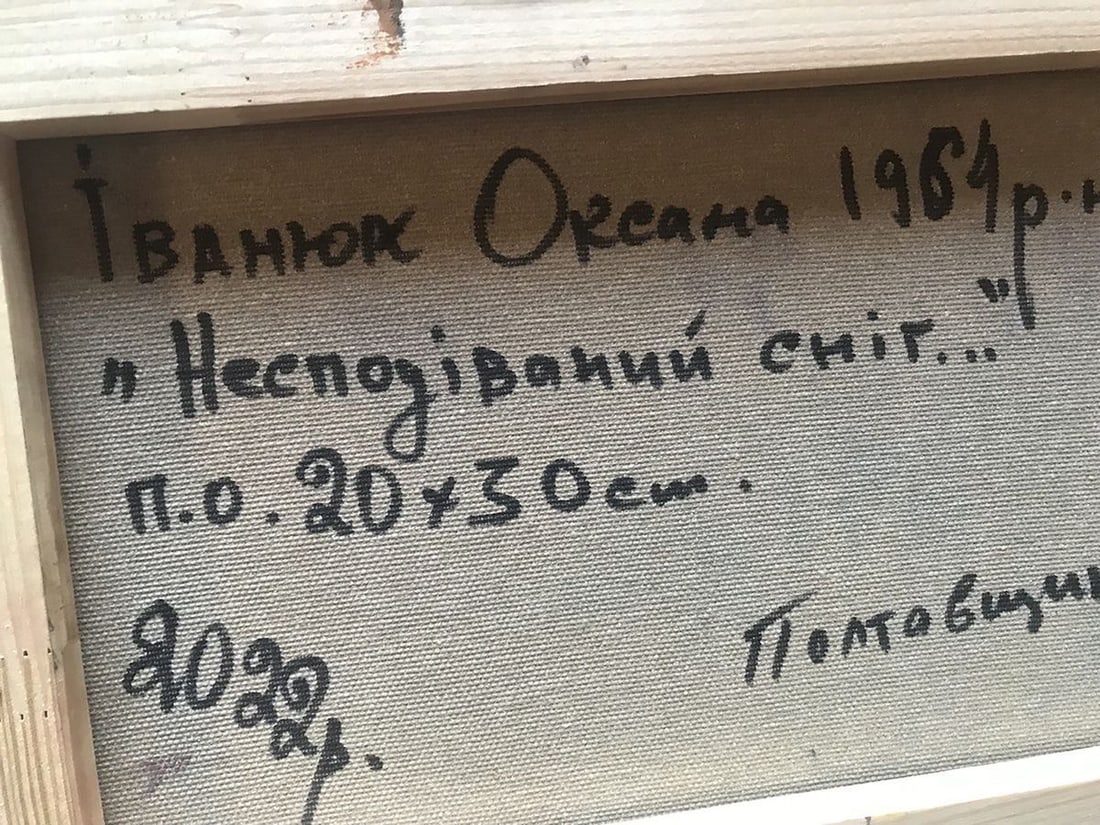 Іванюк Оксана 1964 р.н
„Несподіваний сніг..."
п.о. 20x30 cm.
2022р.
Полтавщин